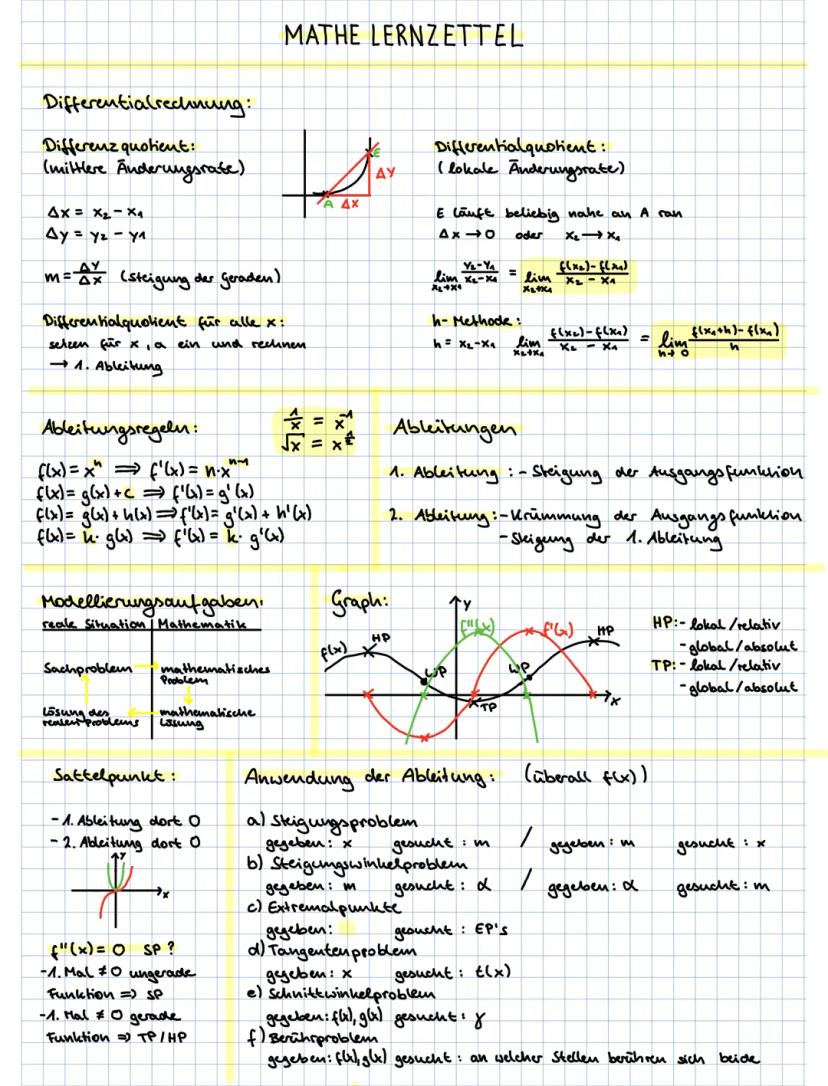 MATHE LERNZETTEL
Differentialrechnung:
Differenzquotient:
(mittlere Änderungsrate)
Δx = x₂ - x₁
Δy = y₂ - y₁
m = Δy/Δx (Steigung der Geraden)
E
Δy
A Δx
Differentialquotient für alle x:
setzen für x, a ein und rechnen
→ 1. Ableitung
Differentialquotient:
(lokale Änderungsrate)
E läuft beliebig nahe an A ran
Δx → 0 oder x₂ → x₁
lim x₂→x₁ (y₂-y₁)/(x₂-x₁) = lim x₂→x₁ (f(x₂)-f(x₁))/(x₂ - x₁)
h-Methode:
h = x₂-x₁ lim x₂→x₁ (f(x₂)-f(x₁))/(x₂ - x₁) = lim h→0 (f(x₁+h)-f(x₁))/h
Ableitungsregeln:
1/x = x⁻¹
√x = x^½
f(x) = xⁿ ⟹ f'(x) = n·xⁿ⁻¹
f(x) = g(x) + c ⟹ f'(x) = g'(x)
f(x) = g(x) + h(x) ⟹ f'(x) = g'(x) + h'(x)
f(x) = k· g(x) ⟹ f'(x) = k· g'(x)
Ableitungen
1. Ableitung : - Steigung der Ausgangsfunktion
2. Ableitung : - Krümmung der Ausgangsfunktion
- Steigung der 1. Ableitung
Modellierungsaufgaben:
reale Situation | Mathematik
Sachproblem → mathematisches
Problem
Lösung des ← mathematische
realen Problems Lösung
Graph:
y
f''(x) f'(x)
HP
f(x) HP
WP WP
TP
x
HP: - lokal/relativ
- global/absolut
TP: - lokal/relativ
- global/absolut
Sattelpunkt:
- 1. Ableitung dort 0
- 2. Ableitung dort 0
y
x
f''(x) = 0 SP ?
- 1. Mal ≠ 0 ungerade
Funktion ⇒ SP
- 1. Mal ≠ 0 gerade
Funktion ⇒ TP/HP
Anwendung der Ableitung: (überall f(x))
a) Steigungsproblem
gegeben: x gesucht: m / gegeben: m gesucht: x
b) Steigungswinkelproblem
gegeben: m gesucht: α / gegeben: α gesucht: m
c) Extremalpunkte
gegeben: gesucht: EP's
d) Tangentenproblem
gegeben: x gesucht: t(x)
e) Schnittwinkelproblem
gegeben: f(x), g(x) gesucht: γ
f) Berührproblem
gegeben: f(x), g(x) gesucht: an welcher Stellen berühren sich beide